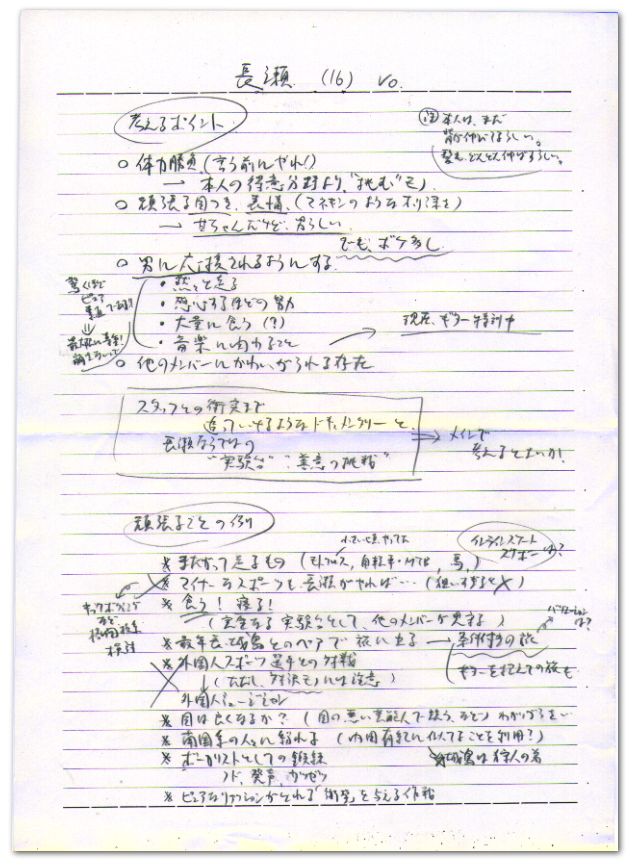 長瀬 (16) Vo.
考えるポイント
注 本人は、まだ
背が伸びるらしい。
髪も、どんどん伸びるらしい。
○ 体力勝負 (言う前にやれ!)
→ 本人の得意分野より、"挑む"モノ
○ 頑張る目つき、表情、(マネキンのようなホリ深さ)
→ 甘ちゃんだけど、男らしい
でも、ボケ多し
○ 男に応援されるようにする
・黙々と走る
・感心するほどの努力
・大量に食う (?)
・音楽に向かうこと
→ 現在、ギター特訓中
驚くほど
ピュア
素直
○ 他のメンバーにかわいがられる存在
スタッフとの衝突まで
追っていけるようなドキュメンタリーと、
長瀬ならではの
"実験台" "善意の挑戦"
⇒ メインで
考えるとよいか!
頑張ることの例
インラインスケート
スケボーは?
※ またがって走るもの (モトクロス, 自転車・MTB, 馬,)
※ マイナーなスポーツも、長瀬がやれば… (狙いすぎると×)
キックボクシング
など
格闘技系
検討
※ 食う! 寝る!
(実食なる実験台として、他のメンバーが見守る)
※ 最年長・城島とのペアで旅に出る → 条件付きの旅
バリエーション
は?
ギターを抱えての旅も
※ 外国人スポーツ選手との対戦
↓ (ただし、対決モノには注意)
外国人ミュージシャン
※ 目は良くなるか? (目の悪い芸能人で競う、など) わかりづらい…
※ 南国系の人々に紛れる (内田有紀に似てることを利用?)
※ ボーカリストとしての鍛錬
ノド、発声、カツゼツ
※城島は狩人の弟
※ ピュアなリアクションがとれる「衝撃」を与える作戦